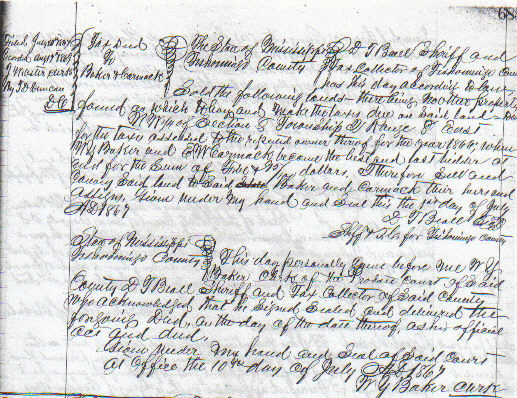 68
Filed July 10th 1867
Tax Deed
To
Baker & Carmack
The State of Mississippi
Tishomingo County
D T Beall Sheriff and
Tax Collector of Tishomingo County
has this day according to law
Sold the following lands there being no other property
found on which to levy and make the taxes due on said land
of Section 8 Township 2 Range 8 East
for the taxes assessed to the reputed owner thereof for the year 1866, when
W Y Baker and E W Carmack became the best and last bidder at
and for the Sum of Five & dollars. Therefore Sell and
Convey Said land to Said Baker and Carmack their heirs and
assigns. Given under my hand and Seal this the 1st day of July
AD 1867
D T Beall
Shff & T C for Tishomingo County
State of Mississippi
Tishomingo County
This day personally came before me W Y
Baker Clerk of the Probate Court of Said
County D T Beall Sheriff and Tax Collector of Said County
who acknowledged that he Signed Sealed and delivered the
foregoing Deed, on the day of the date thereof, as his official
act and deed.
Given under my hand and Seal of Said Court
at Office the 10th day of July AD 1867
W Y Baker Clerk